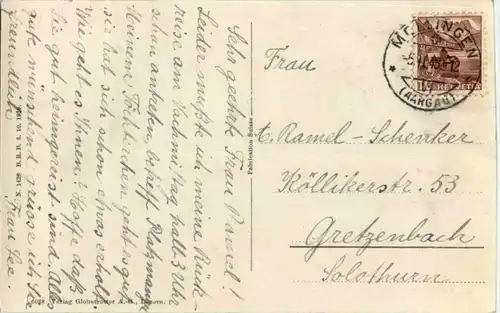 Sehr geehrte Frau Ramel!
Leider mußte ich meine Rück-
reise am Nachmittag halb 3 Uhr
schon antreten, betreff Platzmangel
Meinem Töchterchen geht es gut
sie hat sich schon etwas erholt.
Wie geht es Ihnen? Hoffe daß
Sie gut heimgereist sind. Alles
gute wünschend grüsse ich Sie
freundlich
Frau
N. 1428 B. R. B. 3. 10. 1938
6028 Verlag Globetrotter A.-G., Luzern.
Fabrication Suisse
MELLINGEN
(AARGAU)
Frau
C. Ramel-Schenker
Köllikerstr. 53
Gretzenbach
Solothurn